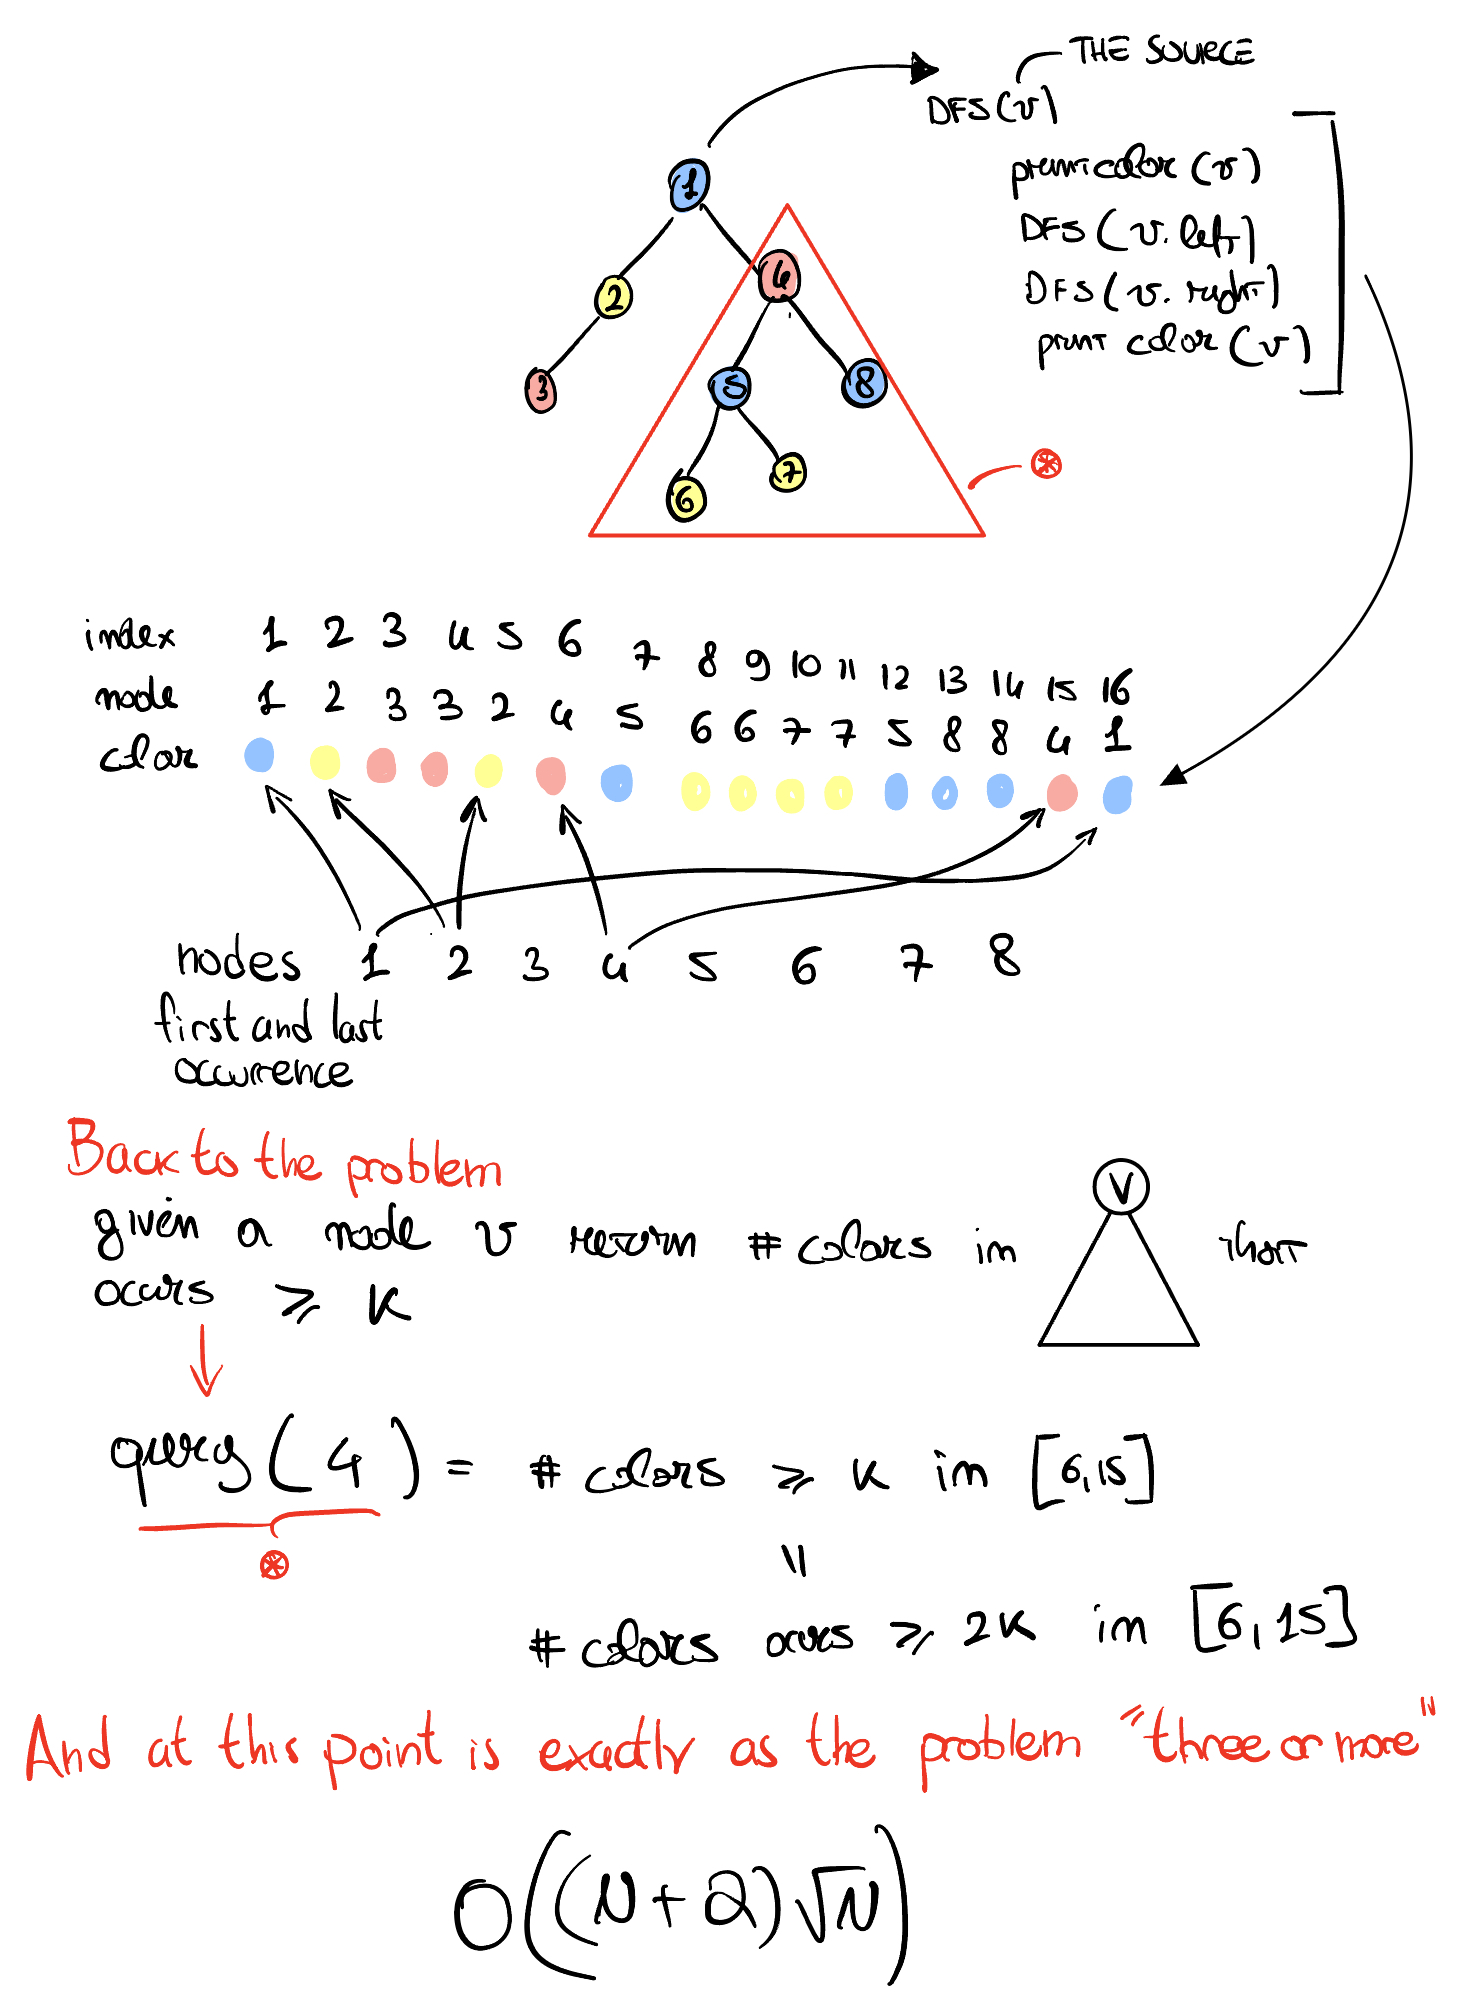 THE SOURCE
DFS(v)
print color (v)
DFS (v. left)
DFS (v. right)
print color (v)
1
2
4
3
5
8
6
7
index 1 2 3 4 5 6 7 8 9 10 11 12 13 14 15 16
node 1 2 3 3 2 4 5 6 6 7 7 5 8 8 4 1
color
nodes 1 2 3 4 5 6 7 8
first and last
occurrence
Back to the problem
given a node v return # colors in V that
occurs ⩾ K
query (4) = # colors ⩾ K in [6,15]
=
# colors occurs ⩾ 2K in [6,15]
And at this point is exactly as the problem "three or more"
O((N+Q)√N)